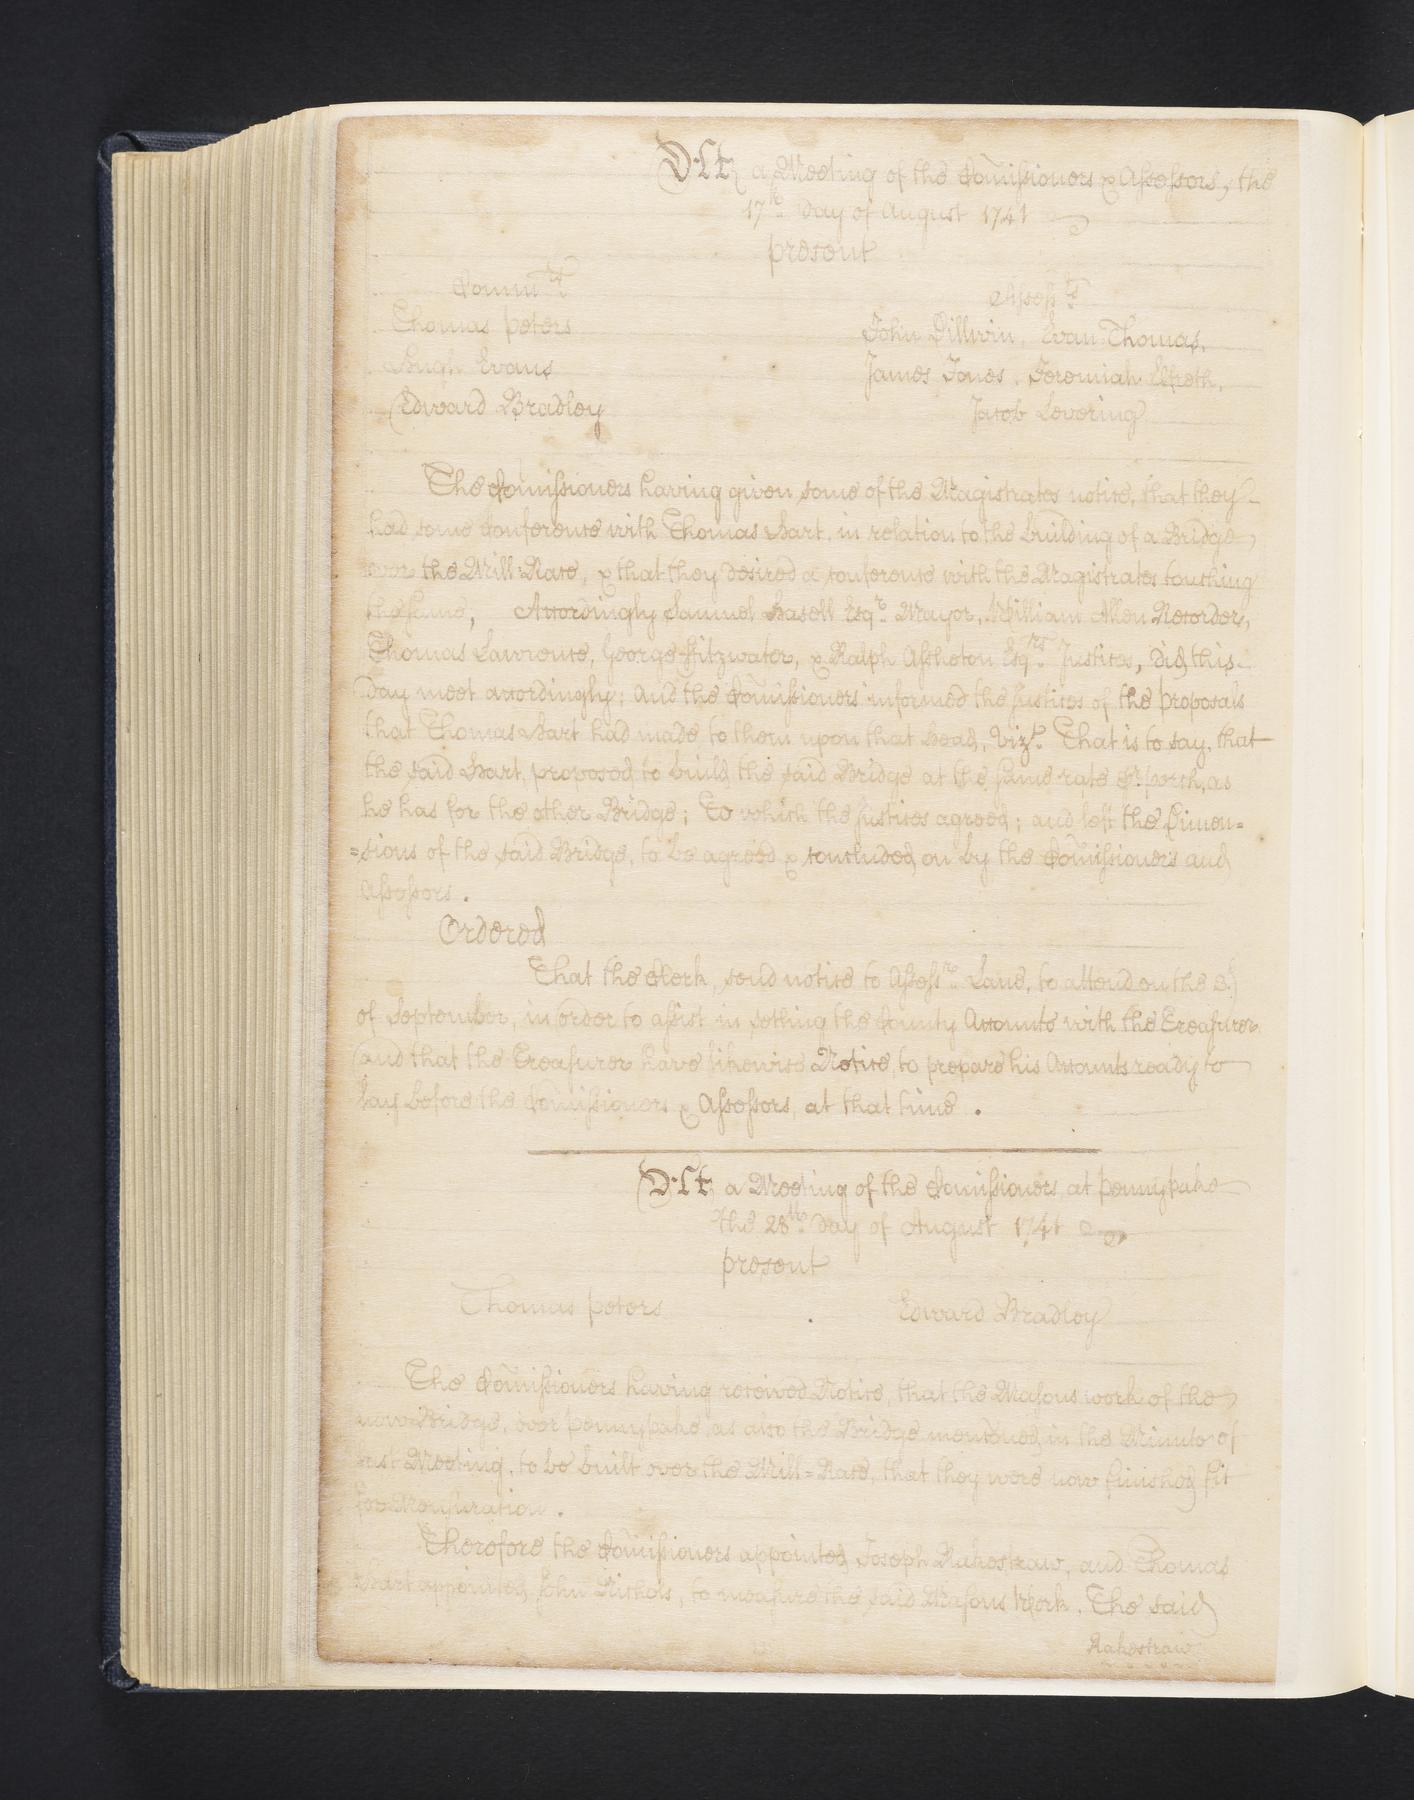 At a Meeting of the Com̃issioners & Assessors, the
17th Day of August 1741
present
Commrs
Assessrs
Thomas Peters
John Dillwin, Evan Thomas,
Hugh Evans
James Jones, Jeremiah Elfreth,
Edward Bradley
Jacob Levering
The Com̃issioners having given some of the Magistrates notice, that they
had some Conference with Thomas Hart, in relation to the building of a Bridge
over the Mill-Race, & that they desired a conference with the Magistrates touching
the same, Accordingly Samuel Hasell Esqr. Mayor, William Allen Recorder,
Thomas Lawrence, George Fitzwater, & Ralph Assheton Esqrs. Justices, did this
Day meet accordingly; and the Com̃issioners informed the Justices of the proposals
that Thomas Hart had made to them upon that head, Vizt. That is to say, that
the said Hart, proposed to build the said Bridge at the same rate Pr. perch, as
he has for the other Bridge; To which the Justices agreed; and left the Dimen=
=sions of the said Bridge, to be agreed & concluded on by the Com̃issioners and
Assessors.
Ordered
That the Clerk, send notice to Assessr. Lane, to attend on the 3d
of September, in order to assist in setling the County Accounts with the Treasurer
and that the Treasurer have likewise Notice, to prepare his Accounts ready to
lay before the Com̃issioners & Assessors, at that time.
At a Meeting of the Com̃issioners, at pennypake
the 28th Day of August 1741
present
Thomas Peters
Edward Bradley
The Com̃issioners having received Notice, that the Masons work of the
new Bridge, over pennypake, as also the Bridge mentioned in the Minute of
last Meeting, to be built over the Mill=Race, that they were now finished fit
for Mensuration.
Therefore the Com̃issioners appointed Joseph Rakestraw, and Thomas
Hart appointed John Nichols, to measure the said Masons Work. The said
Rakestraw